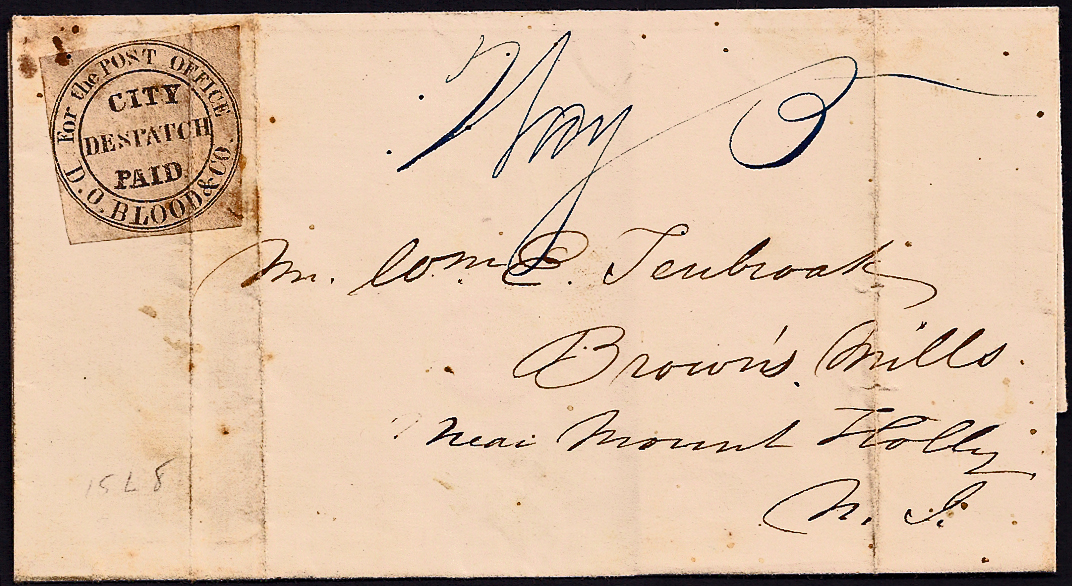 For the POST OFFICE
CITY
DESPATCH
PAID
D.O. BLOOD & CO.
Way 5
Mr. Wm. E. Tenbrook
Brown's Mills
near Mount Holly
N. J.
15L8